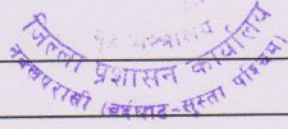 गृह मन्त्रालय
जिल्ला प्रशासन कार्यालय
नवलपरासी (बर्दघाट-सुस्ता पश्चिम)